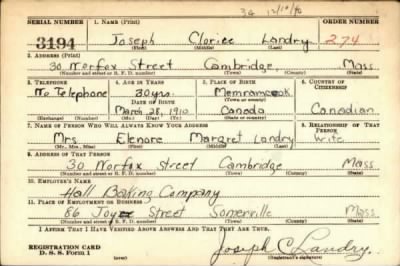 3A 12/10/40
SERIAL NUMBER 1. NAME (Print) ORDER NUMBER
3194 Joseph Clorice Landry 274
(First) (Middle) (Last)
2. ADDRESS (Print)
30 Norfox Street Cambridge, Mass.
(Number and street or R. F. D. number) (Town) (County) (State)
3. TELEPHONE 4. AGE IN YEARS 5. PLACE OF BIRTH 6. COUNTRY OF CITIZENSHIP
No Telephone 30 yrs. Memramcook
DATE OF BIRTH (Town or county)
March 28, 1910 Canada Canadian
(Exchange) (Number) (Mo.) (Day) (Yr.) (State or country)
7. NAME OF PERSON WHO WILL ALWAYS KNOW YOUR ADDRESS 8. RELATIONSHIP OF THAT PERSON
Mrs. Elenore Margret Landry Wife
(Mr., Mrs., Miss) (First) (Middle) (Last)
9. ADDRESS OF THAT PERSON
30 Norfox Street Cambridge Mass
(Number and street or R. F. D. number) (Town) (County) (State)
10. EMPLOYER'S NAME
Hall Baking Company
11. PLACE OF EMPLOYMENT OR BUSINESS
86 Joy Street Somerville Mass.
(Number and street or R. F. D. number) (Town) (County) (State)
I AFFIRM THAT I HAVE VERIFIED ABOVE ANSWERS AND THAT THEY ARE TRUE.
REGISTRATION CARD
D. S. S. Form 1 Joseph C. Landry.
(Registrant's signature)